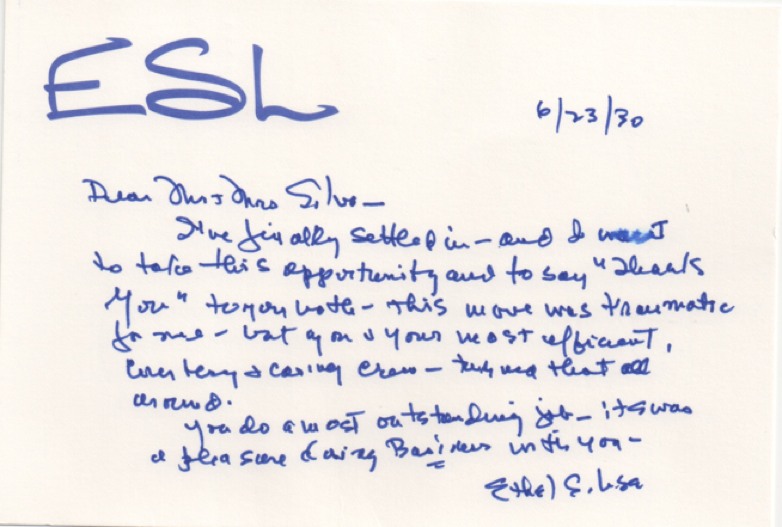 ESL
6/23/30
Dear Mr & Mrs Silva—
I've finally settled in — and I want
to take this opportunity and to say "Thank
You" to you both — this move was traumatic
for me — but you & your most efficient,
& caring crew — turned that all
around.
you do a most outstanding job — its was
a pleasure doing Business with you—
Ethel S.